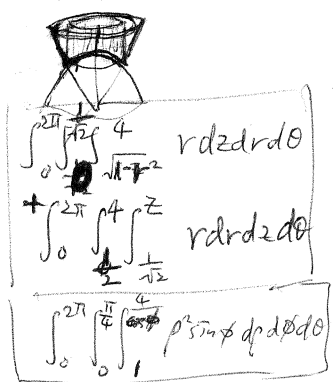 ∫₀^{2π} ∫^{1/√2} ∫_{√(1-r²)}^{4} r dz dr dθ
+ ∫₀^{2π} ∫^{4} ∫_{1/√2}^{z} r dr dz dθ
∫₀^{2π} ∫₀^{π/4} ∫₁^{4/} ρ² sin φ dρ dφ dθ